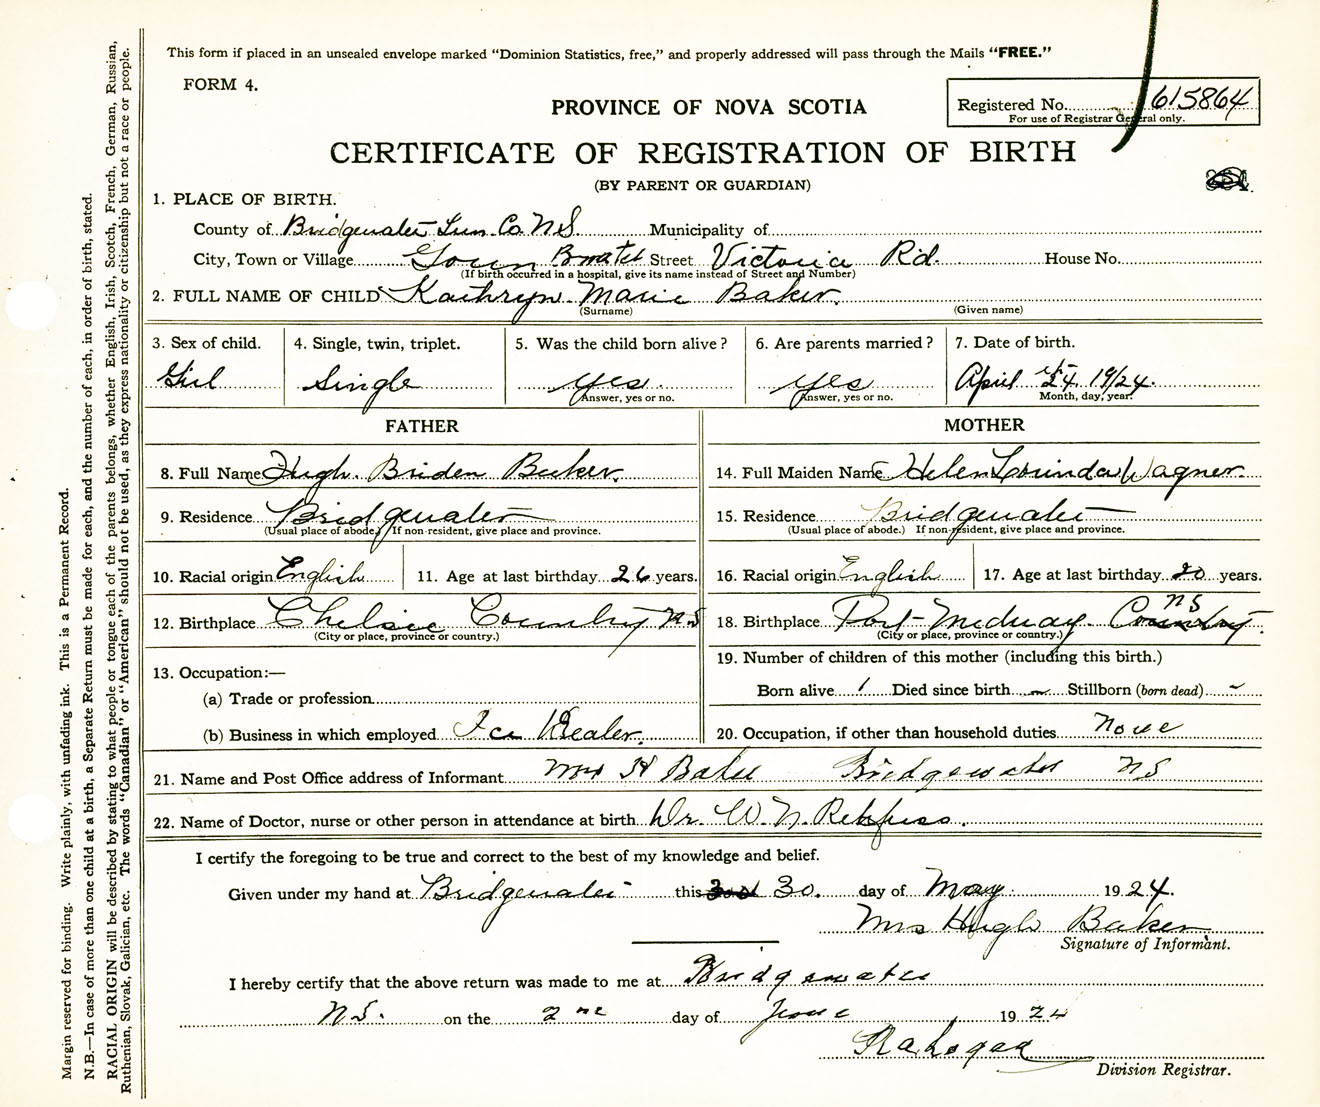 This form if placed in an unsealed envelope marked "Dominion Statistics, free," and properly addressed will pass through the Mails "FREE."
FORM 4.
PROVINCE OF NOVA SCOTIA
Registered No. 615864
For use of Registrar General only.
CERTIFICATE OF REGISTRATION OF BIRTH
(BY PARENT OR GUARDIAN)
1. PLACE OF BIRTH.
County of Bridgewater Lun. Co. N.S. Municipality of
City, Town or Village Town Street Victoria Rd. House No.
(If birth occurred in a hospital, give its name instead of Street and Number)
2. FULL NAME OF CHILD Kathryn Marie Baker.
(Surname) (Given name)
3. Sex of child. 4. Single, twin, triplet. 5. Was the child born alive? 6. Are parents married? 7. Date of birth.
Girl Single yes. yes April 24 1924.
Answer, yes or no. Answer, yes or no. Month, day, year.
FATHER MOTHER
8. Full Name Hugh Briden Baker. 14. Full Maiden Name Helen Lorinda Wagner.
9. Residence Bridgewater 15. Residence Bridgewater
(Usual place of abode.) If non-resident, give place and province. (Usual place of abode.) If non-resident, give place and province.
10. Racial origin English 11. Age at last birthday 26 years. 16. Racial origin English 17. Age at last birthday 20 years.
12. Birthplace Chelsie Country N.S 18. Birthplace Port-Medway NS Country.
(City or place, province or country.) (City or place, province or country.)
13. Occupation:— 19. Number of children of this mother (including this birth.)
(a) Trade or profession Born alive 1 Died since birth - Stillborn (born dead) -
(b) Business in which employed Ice Dealer. 20. Occupation, if other than household duties None
21. Name and Post Office address of Informant Mrs H Baker Bridgewater NS
22. Name of Doctor, nurse or other person in attendance at birth Dr. W. N. Rehfuss.
I certify the foregoing to be true and correct to the best of my knowledge and belief.
Given under my hand at Bridgewater this 30. day of May. 1924.
Mrs Hugh Baker
Signature of Informant.
I hereby certify that the above return was made to me at Bridgewater
N.S. on the 2nd day of June 1924
Division Registrar.
Margin reserved for binding. Write plainly, with unfading ink. This is a Permanent Record.
N.B.—In case of more than one child at a birth, a Separate Return must be made for each, and the number of each, in order of birth, stated.
RACIAL ORIGIN will be described by stating to what people or tongue each of the parents belongs, whether English, Irish, Scotch, French, German, Russian,
Ruthenian, Slovak, Galician, etc. The words "Canadian" or "American" should not be used, as they express nationality or citizenship but not a race or people.